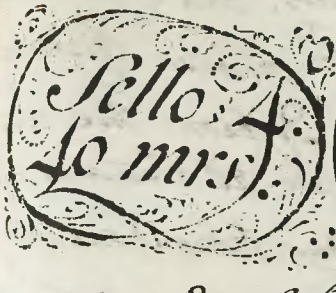 Sello. 4.
40 mrs.